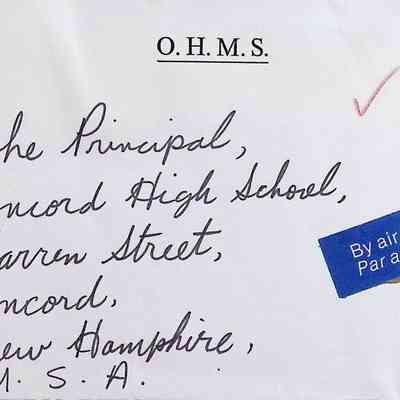 O. H. M. S.
he Principal,
ncord High School,
arren Street,
ncord,
ew Hampshire,
. S. A.
By air
Par a